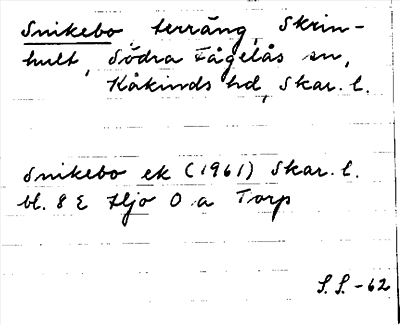 Snikebo, terräng, Skrin-
hult, Södra Fågelås sn,
Kåkinds hd, Skar. l.
Snikebo ek (1961) Skar. l.
bl. 8 E Hjo O a Torp
S. S. -62